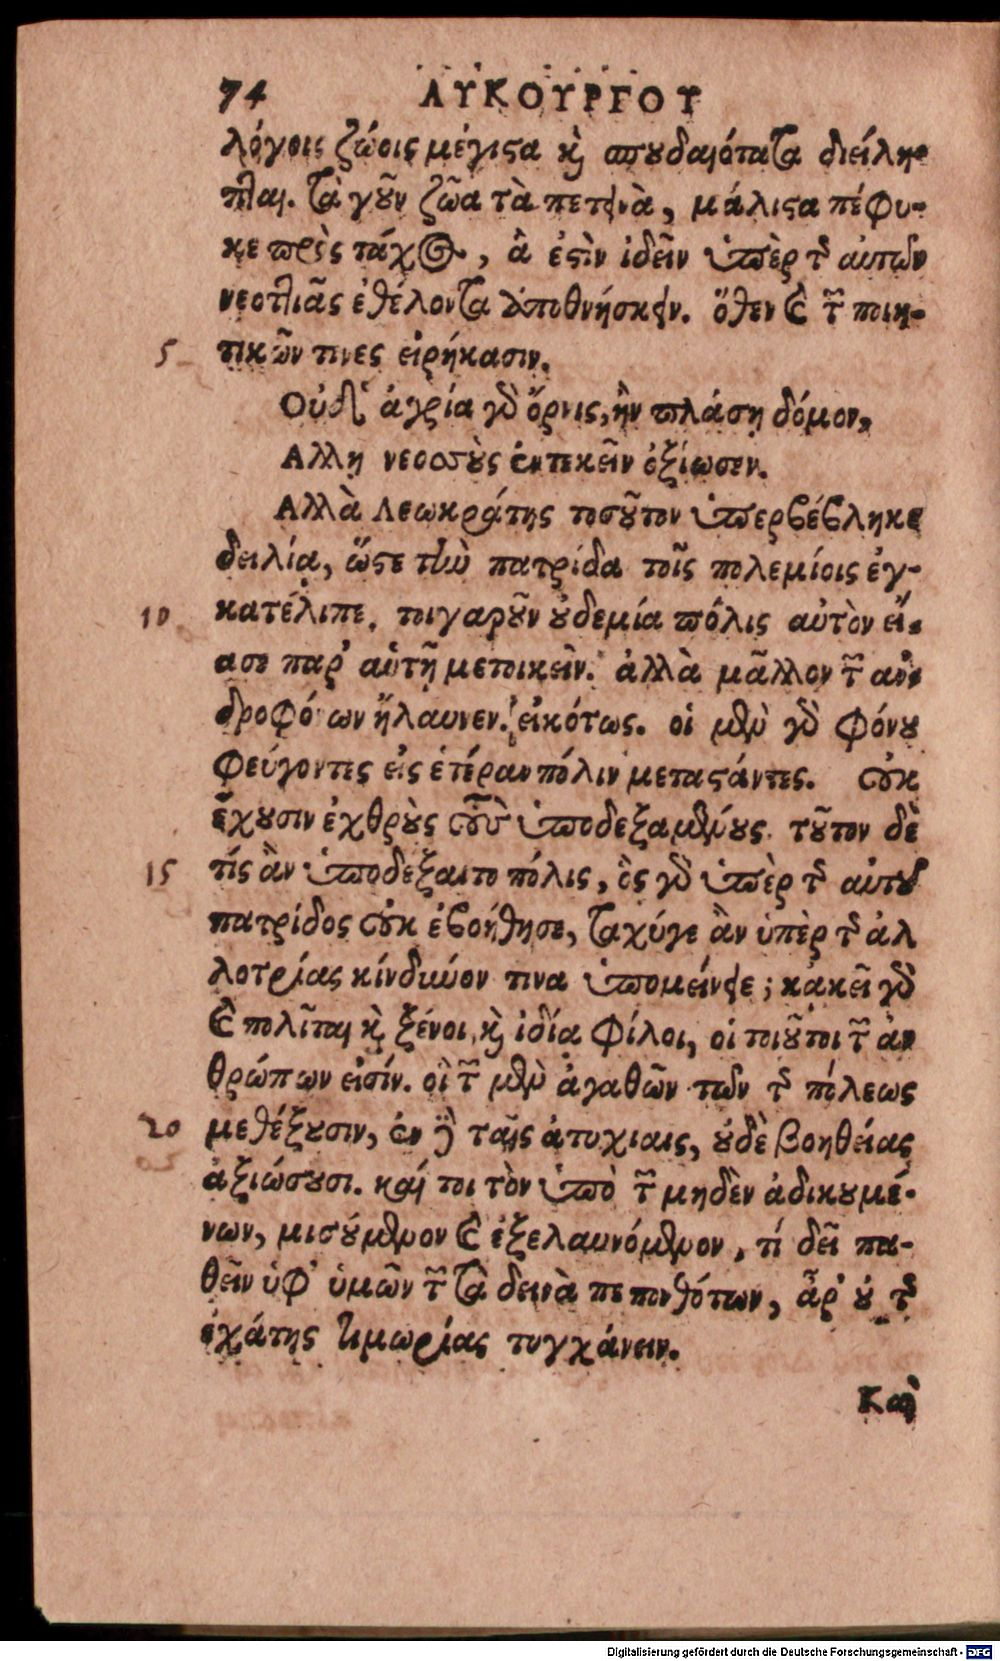 74 ΛΥΚΟΥΡΓΟΥ
λόγοις ζώοις μέγιςα κὶ σπουδαιότατα διείλη-
πται. τὰ γοῦν ζῶα τὰ πετεινὰ, μάλιςα πέφυ-
κε πρὸς τάχος, ἃ ἐςὶν ἰδεῖν ὑπὲρ τῆς αὑτῶν
νεοττιᾶς ἐθέλοντα ἀποθνήσκειν. ὅθεν καὶ τῶν ποιη-
5 τικῶν τινες εἰρήκασιν.
Οὐδ' ἀγρία γὰρ ὄρνις, ἣν πλάση δόμον,
Αλλη νεοσσοὺς ἐντεκεῖν ἠξίωσεν.
Αλλὰ Λεωκράτης τοσοῦτον ὑπερβέβληκε
δειλία, ὥςε τὴν πατρίδα τοῖς πολεμίοις ἐγ-
10 κατέλιπε. τοιγαροῦν οὐδεμία πόλις αὐτὸν εἴ-
ασε παρ' αὑτῆ μετοικεῖν. ἀλλὰ μᾶλλον τῶν αν-
δροφόνων ἤλαυνεν. εἰκότως. οἱ μὲν γὰρ φόνου
φεύγοντες εἰς ἑτέραν πόλιν μεταςάντες. οὐκ
ἔχουσιν ἐχθροὺς τοὺς ὑποδεξαμένους. τοῦτον δὲ
15 τίς ἂν ὑποδέξαιτο πόλις, ὃς γὰρ ὑπὲρ τῆς αὑτοῦ
πατρίδος οὐκ ἐβοήθησε, ταχύγε ἂν ὑπὲρ τῆς ἀλ
λοτρίας κίνδυνον τινα ὑπομείνειε; κἀκεῖ γὰρ
καὶ πολῖται κὶ ξένοι, κὶ ἰδία φίλοι, οἱ τοιοῦτοι τῶν ἀν
θρώπων εἰσίν. οἳ τῶν μὲν ἀγαθῶν τῶν τῆς πόλεως
20 μεθέξουσιν, ἐν δὲ ταῖς ἀτυχίαις, οὐδὲ βοηθείας
ἀξιώσουσι. καί τοι τὸν ὑπὸ τῶν μηδὲν ἀδικουμέ-
νων, μισούμενον καὶ ἐξελαυνόμενον, τί δεῖ πα-
θεῖν ὑφ' ὑμῶν τῶν τὰ δεινὰ πεπονθότων, ἆρ' οὐ τῆς
ἐχάτης τιμωρίας τυγχάνειν.
Καὶ
Digitalisierung gefördert durch die Deutsche Forschungsgemeinschaft - DFG